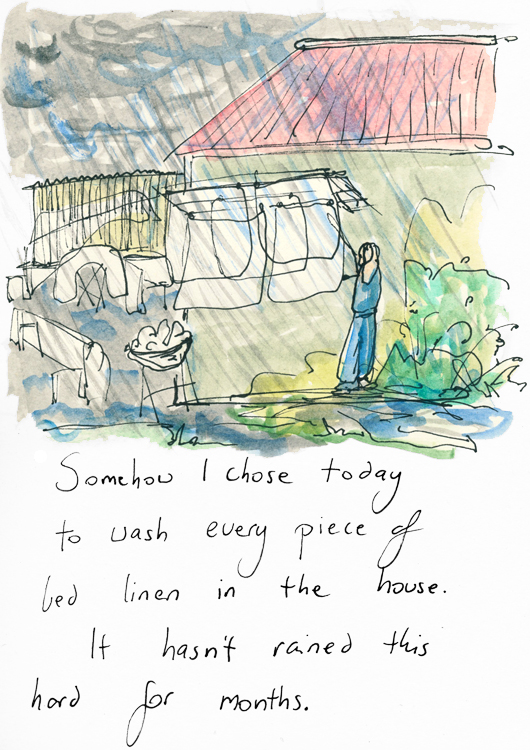 Somehow I chose today
to wash every piece of
bed linen in the house.
It hasn't rained this
hard for months.